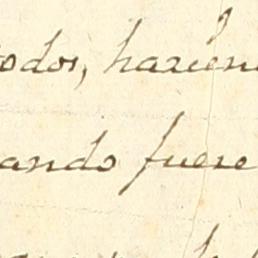 odos, hazien
ando fuere